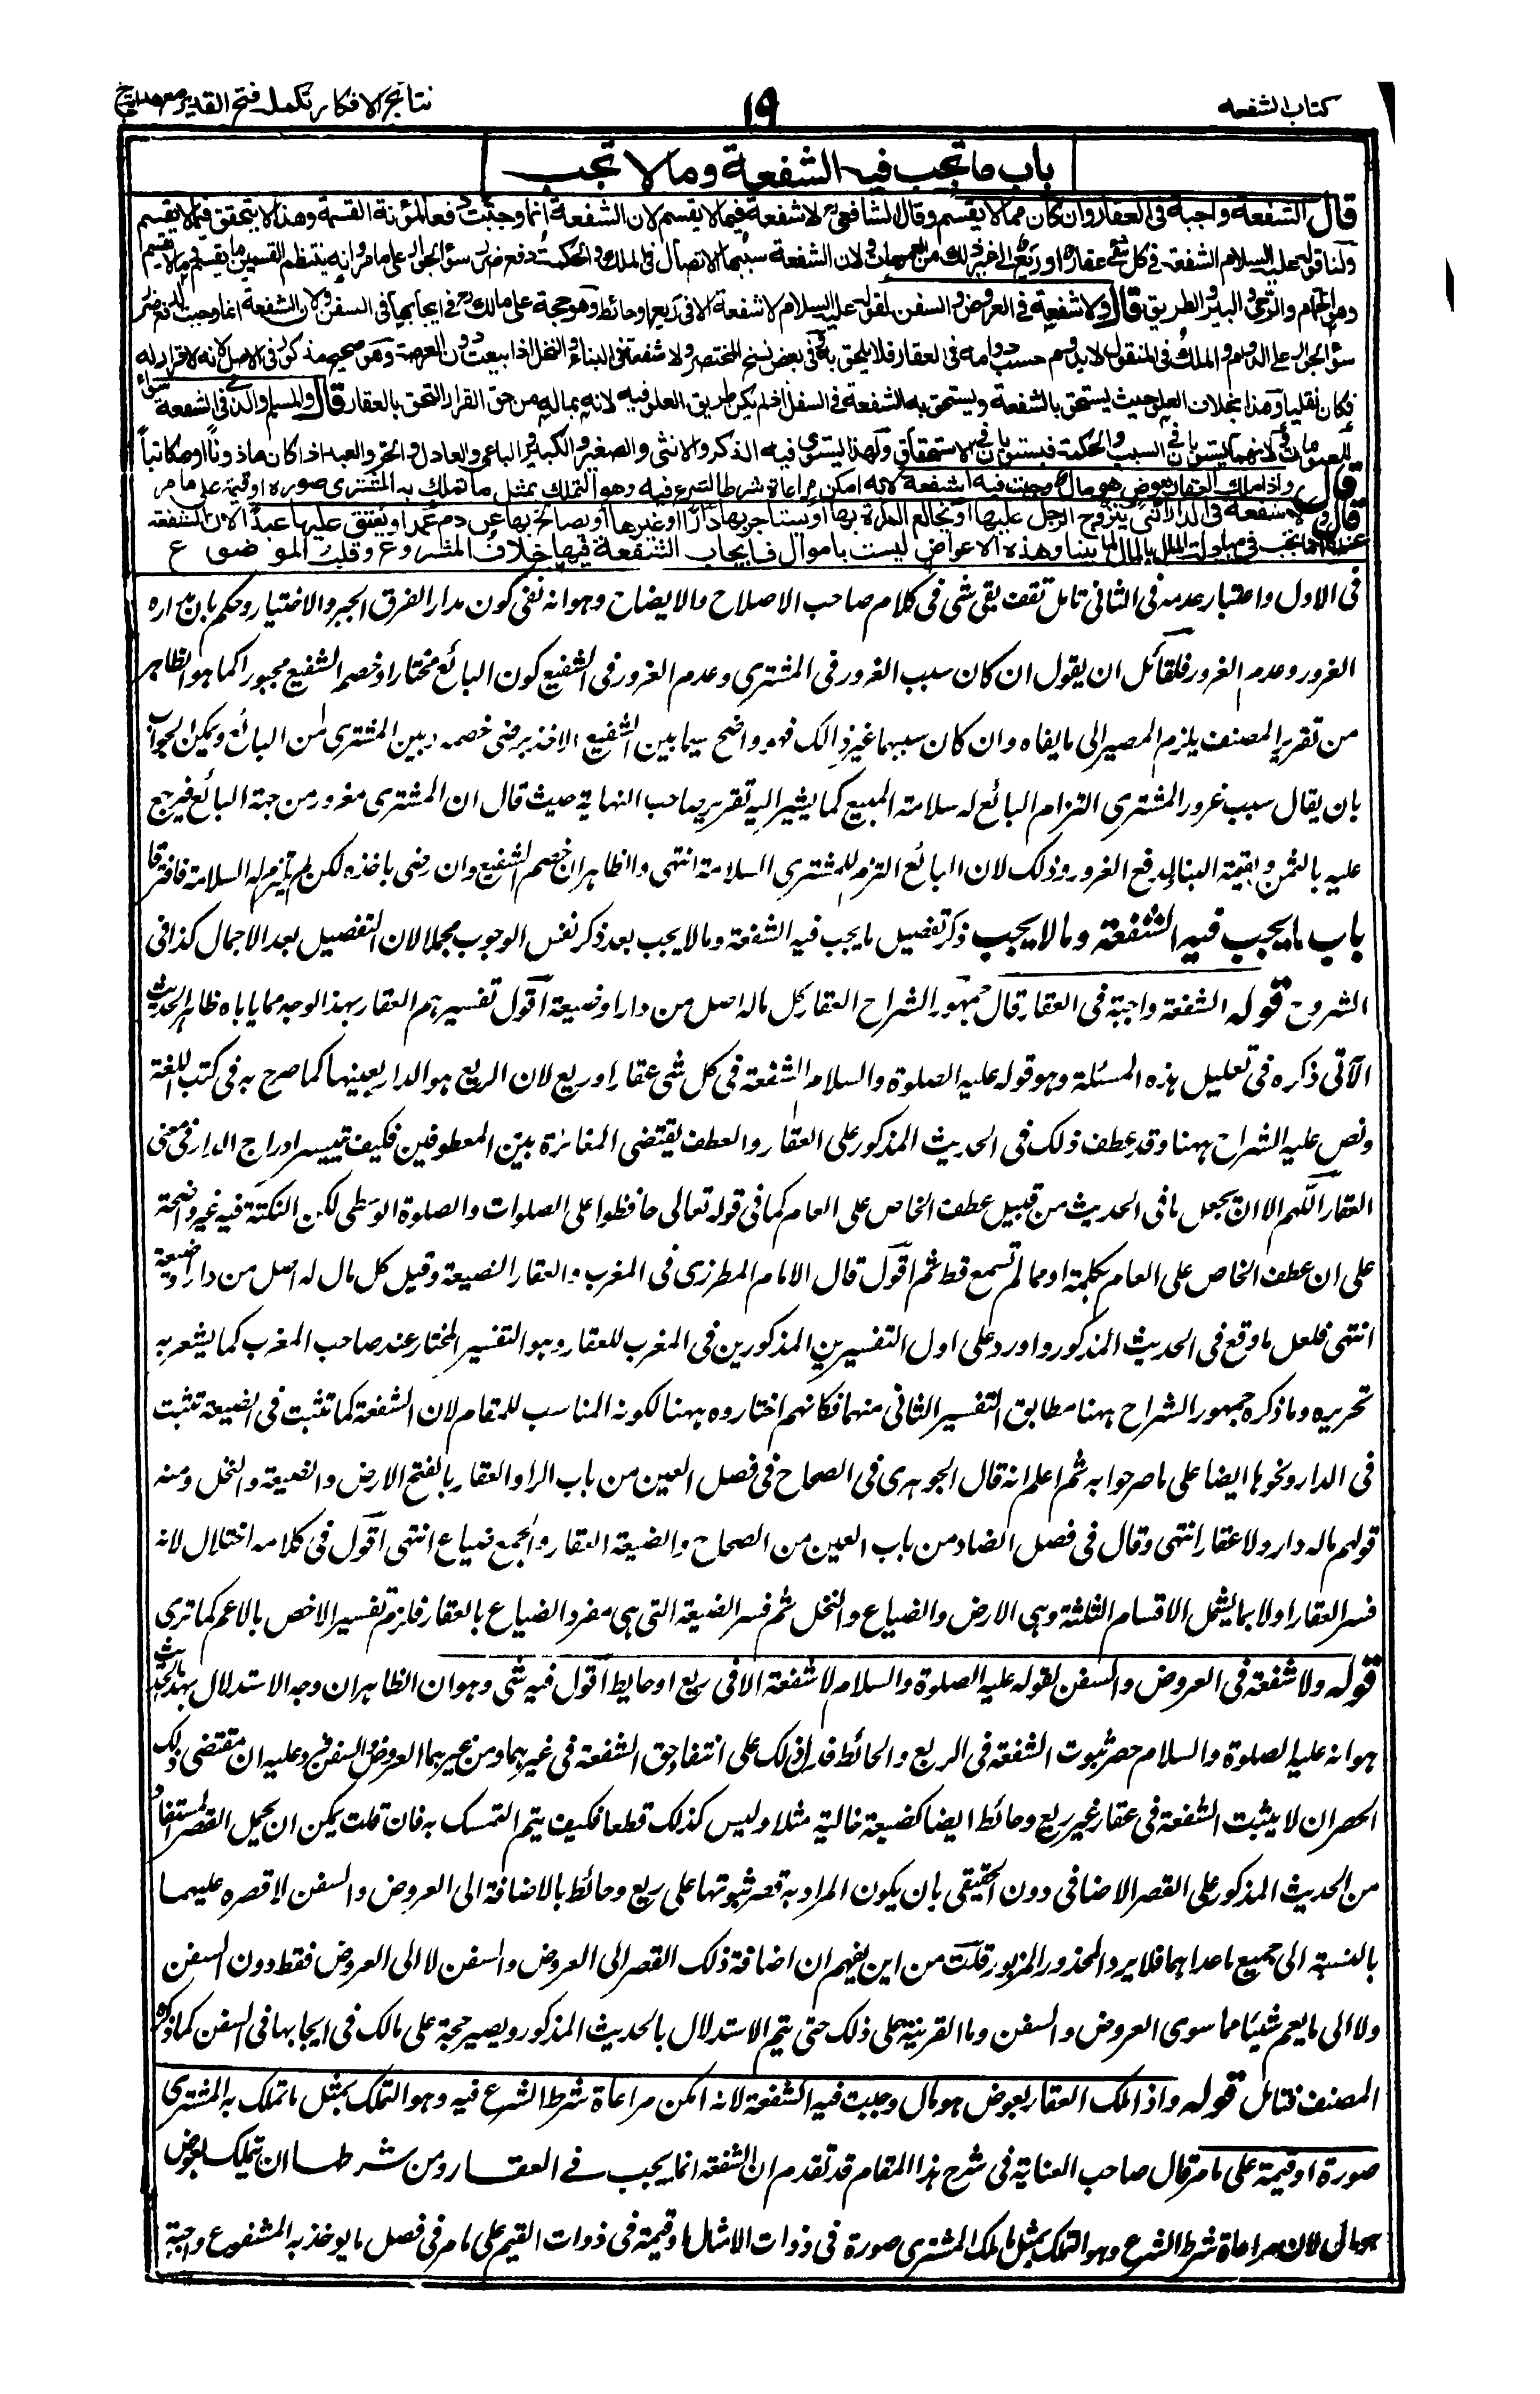 كتاب الشفعه
١٩
نتائج الافكار تكمله فتح القدير مع هدايه
باب ما تجب فيه الشفعة وما لا تجب
قال الشفعة واجبة فى العقار وان كان مما لا يقسم وقال الشافعى لا شفعة فيما لا يقسم لان الشفعة انما وجبت دفعا لمؤنة القسمة وهذا لا يتحقق فيما لا يقسم
ولنا قوله عليه السلام الشفعة فى كل شئ عقار او ربع الى غير ذلك من العمومات ولان الشفعة سببها الاتصال فى الملك والحكمة دفع ضرر سوء الجوار على ما مر وانه ينتظم القسمين ما يقسم وما لا يقسم
وهو الحمام والرحى والبئر والطريق قال ولا شفعة فى العروض والسفن لقوله عليه السلام لا شفعة الا فى ربع او حائط وهو حجة على مالك فى ايجابها فى السفن ولان الشفعة انما وجبت لدفع ضرر
سوء الجوار على الدوام والملك فى المنقول لا يدوم حسب دوامه فى العقار فلا يلحق به وفى بعض نسخ المختصر ولا شفعة فى البناء والنخل اذا بيعت دون العرصة وهو صحيح مذكور فى الاصل لانه لا قرار له
فكان نقليا وهذا بخلاف العلو حيث يستحق بالشفعة ويستحق به الشفعة فى السفل اذا لم يكن طريق العلو فيه لانه بماله من حق القرار التحق بالعقار قال والمسلم والذمى فى الشفعة سواء
للعمومات ولانهما يستويان فى السبب والحكمة فيستويان فى الاستحقاق ولهذا يستوى فيه الذكر والانثى والصغير والكبير والباغى والعادل والحر والعبد اذا كان ماذونا او مكاتبا
قال واذا ملك العقار بعوض هو مال وجبت فيه الشفعة لانه امكن مراعاة شرط الشرع فيه وهو التملك بمثل ما تملك به المشترى صورة او قيمة على ما مر
قال ولا شفعة فى الدار التى يتزوج الرجل عليها او يخالع المرأة بها او يستأجر بها دارا او غيرها او يصالح بها عن دم عمد او يعتق عليها عبدا لان الشفعة
عندنا انما تجب فى مبادلة المال بالمال لما بينا وهذه الاعواض ليست باموال فايجاب الشفعة فيها خلاف المشروع وقلب الموضوع
فى الاول واعتبار عدمه فى الثانى تامل تقف بقى شى فى كلام صاحب الاصلاح والايضاح وهو انه نفى كون مدار الفرق الجبر والاختيار وحكم بان مداره
الغرور وعدم الغرور فلقائل ان يقول ان كان سبب الغرور فى المشترى وعدم الغرور فى الشفيع كون البائع مختارا وخصم الشفيع مجبورا كما هو الظاهر
من تقرير المصنف يلزم المصير الى ما نفاه وان كان سببهما غير ذلك فهو واضح سيما بين الشفيع الاخذ برضى خصمه وبين المشترى من البائع ويمكن الجواب
بان يقال سبب غرور المشترى التزام البائع له سلامة المبيع كما يشير اليه تقرير صاحب النهاية حيث قال ان المشترى مغرور من جهة البائع فيرجع
عليه بالثمن وبقيمة البناء لدفع الغرور وذلك لان البائع التزم للمشترى السلامة انتهى والظاهر ان خصم الشفيع وان رضى باخذه لكن لم يلتزم له السلامة فافترقا
باب ما يجب فيه الشفعة وما لا يجب ذكر تفصيل ما يجب فيه الشفعة وما لا يجب بعد ذكر نفس الوجوب مجملا لان التفصيل بعد الاجمال كذا فى
الشروح قوله الشفعة واجبة فى العقار قال جمهور الشراح العقار كل ماله اصل من دار او ضيعة اقول تفسيرهم العقار بهذا الوجه مما ياباه ظاهر الحديث
الآتى ذكره فى تعليل هذه المسئلة وهو قوله عليه الصلوة والسلام الشفعة فى كل شى عقار او ربع لان الربع هو الدار بعينها كما صرح به فى كتب اللغة
ونص عليه الشراح ههنا وقد عطف ذلك فى الحديث المذكور على العقار والعطف يقتضى المغائرة بين المعطوفين فكيف تيسر ادراج الدار فى معنى
العقار اللهم الا ان يجعل ما فى الحديث من قبيل عطف الخاص على العام كما فى قوله تعالى حافظوا على الصلوات والصلوة الوسطى لكن النكتة فيه غير واضحة
على ان عطف الخاص على العام بكلمة او مما لم تسمع قط ثم اقول قال الامام المطرزى فى المغرب والعقار الضيعة وقيل كل مال له اصل من دار او ضيعة
انتهى فلعل ما وقع فى الحديث المذكور وارد على اول التفسيرين المذكورين فى المغرب للعقار وهو التفسير المختار عند صاحب المغرب كما يشعر به
تحريره وما ذكره جمهور الشراح ههنا مطابق التفسير الثانى منهما فكانهم اختاروه ههنا لكونه المناسب للمقام لان الشفعة كما تثبت فى الضيعة تثبت
فى الدار ونحوها ايضا على ما صرحوا به ثم اعلم انه قال الجوهرى فى الصحاح فى فصل العين من باب الراء والعقار بالفتح الارض والضيعة والنخل ومنه
قولهم ماله دار ولا عقار انتهى وقال فى فصل الضاد من باب العين من الصحاح والضيعة العقار والجمع ضياع انتهى اقول فى كلامه اختلال لانه
فسر العقار اولا بما يشمل الاقسام الثلثة وهى الارض والضياع والنخل ثم فسر الضيعة التى هى مفرد الضياع بالعقار فلزم تفسير الاخص بالاعم كما ترى
قوله ولا شفعة فى العروض والسفن لقوله عليه الصلوة والسلام لا شفعة الا فى ربع او حايط اقول فيه شى وهو ان الظاهر ان وجه الاستدلال بهذا الحديث
هو انه عليه الصلوة والسلام حصر ثبوت الشفعة فى الربع والحائط فدل ذلك على انتفاء حق الشفعة فى غيرهما ومن غيرهما العروض والسفن فيرد عليه ان مقتضى ذلك
الحصر ان لا يثبت الشفعة فى عقار غير ربع وحائط ايضا كضيعة خالية مثلا وليس كذلك قطعا فكيف يتم التمسك به فان قلت يمكن ان يحمل القصر المستفاد
من الحديث المذكور على القصر الاضافى دون الحقيقى بان يكون المراد به قصر ثبوتها على ربع وحائط بالاضافة الى العروض والسفن لا قصره عليهما
بالنسبة الى جميع ما عداهما فلا يرد المحذور المزبور قلت من اين يفهم ان اضافة ذلك القصر الى العروض والسفن لا الى العروض فقط دون السفن
ولا الى ما يعم شيئا مما سوى العروض والسفن وما القرينة على ذلك حتى يتم الاستدلال بالحديث المذكور ويصير حجة على مالك فى ايجابها فى السفن كما ذكره
المصنف فتامل قوله واذا ملك العقار بعوض هو مال وجبت فيه الشفعة لانه امكن مراعاة شرط الشرع فيه وهو التملك بمثل ما تملك به المشترى
صورة او قيمة على ما مر قال صاحب العناية فى شرح هذا المقام قد تقدم ان الشفعة انما يجب فے العقار ومن شرطها ان تمليك بعوض
هو مال لان مراعاة شرط الشرع وهو التملك بمثل ما ملك المشترى صورة فى ذوات الامثال او قيمة فى ذوات القيم على ما مر فى فصل ما يوخذ به المشفوع واجبة